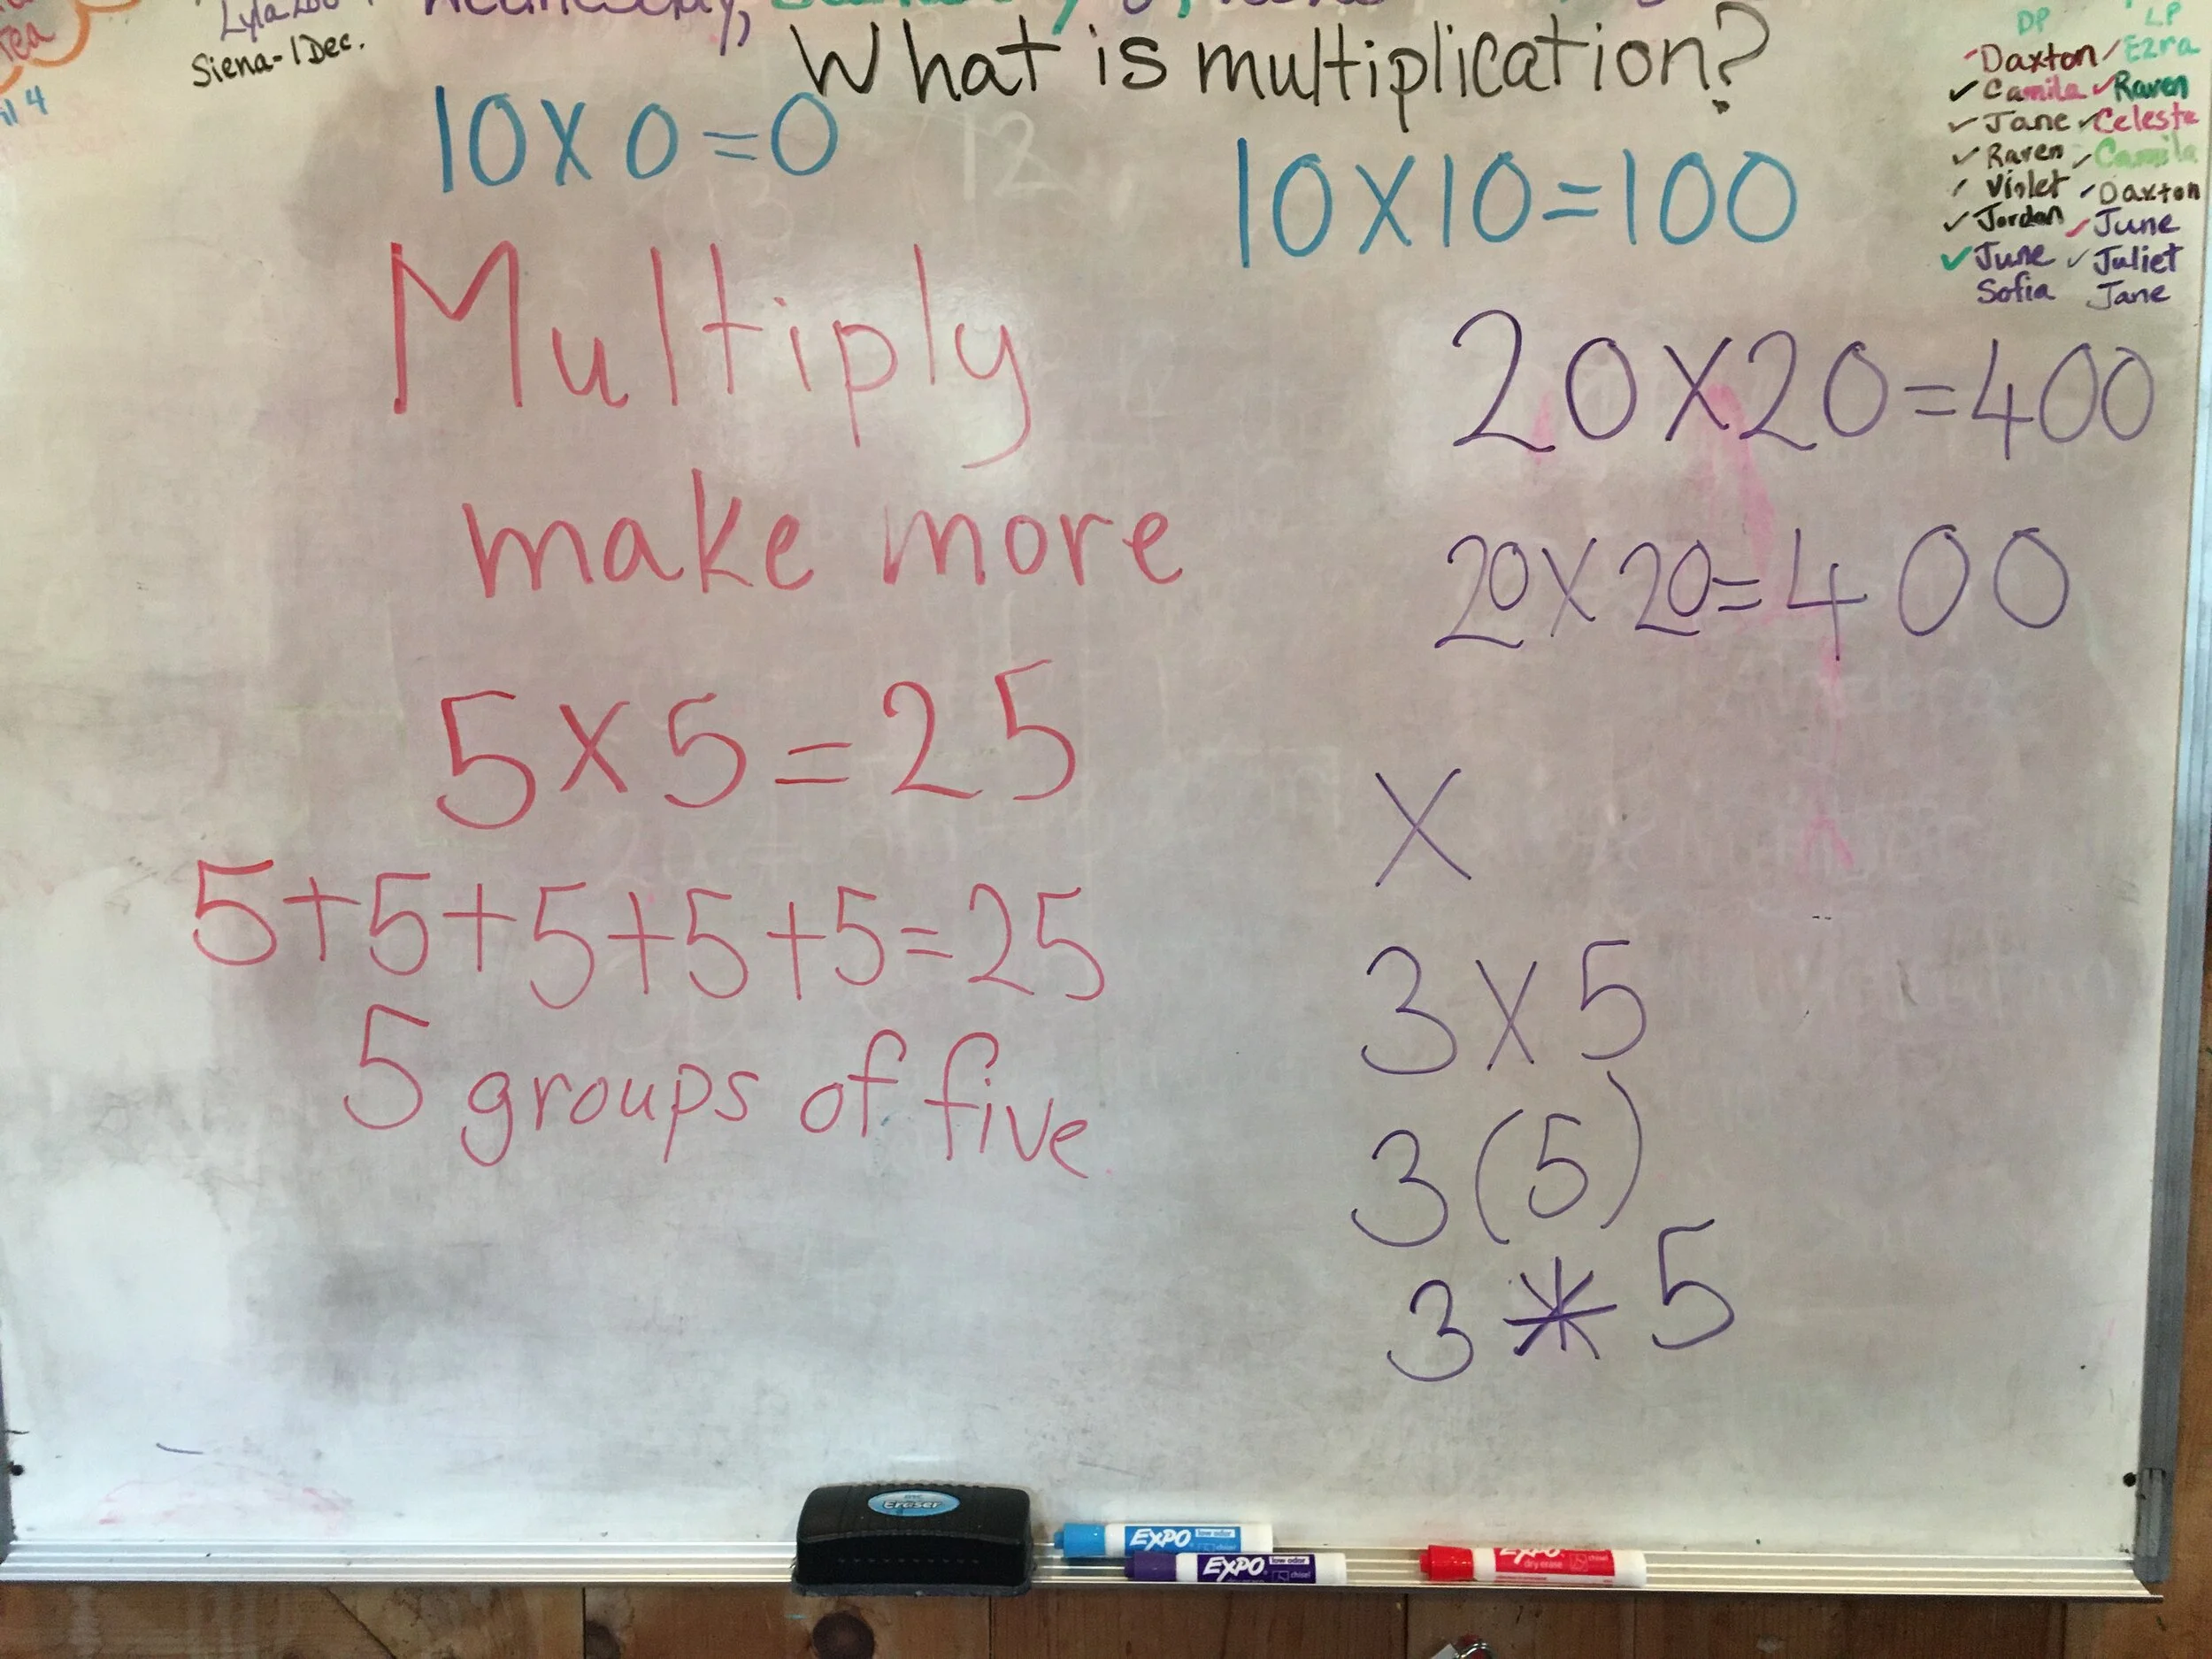 Siena-1Dec.
Wednesday,
What is multiplication?
10 X 0 = 0
10 X 10 = 100
Multiply
make more
5 X 5 = 25
5+5+5+5+5=25
5 groups of five
20 X 20 = 400
20 X 20 = 400
X
3 X 5
3(5)
3 * 5
DP LP
Daxton Ezra
Camila Raven
Jane Celeste
Raven Camila
Violet Daxton
Jordan June
June Juliet
Sofia Jane
Eraser
EXPO low odor chisel
EXPO low odor chisel
EXPO dry erase chisel